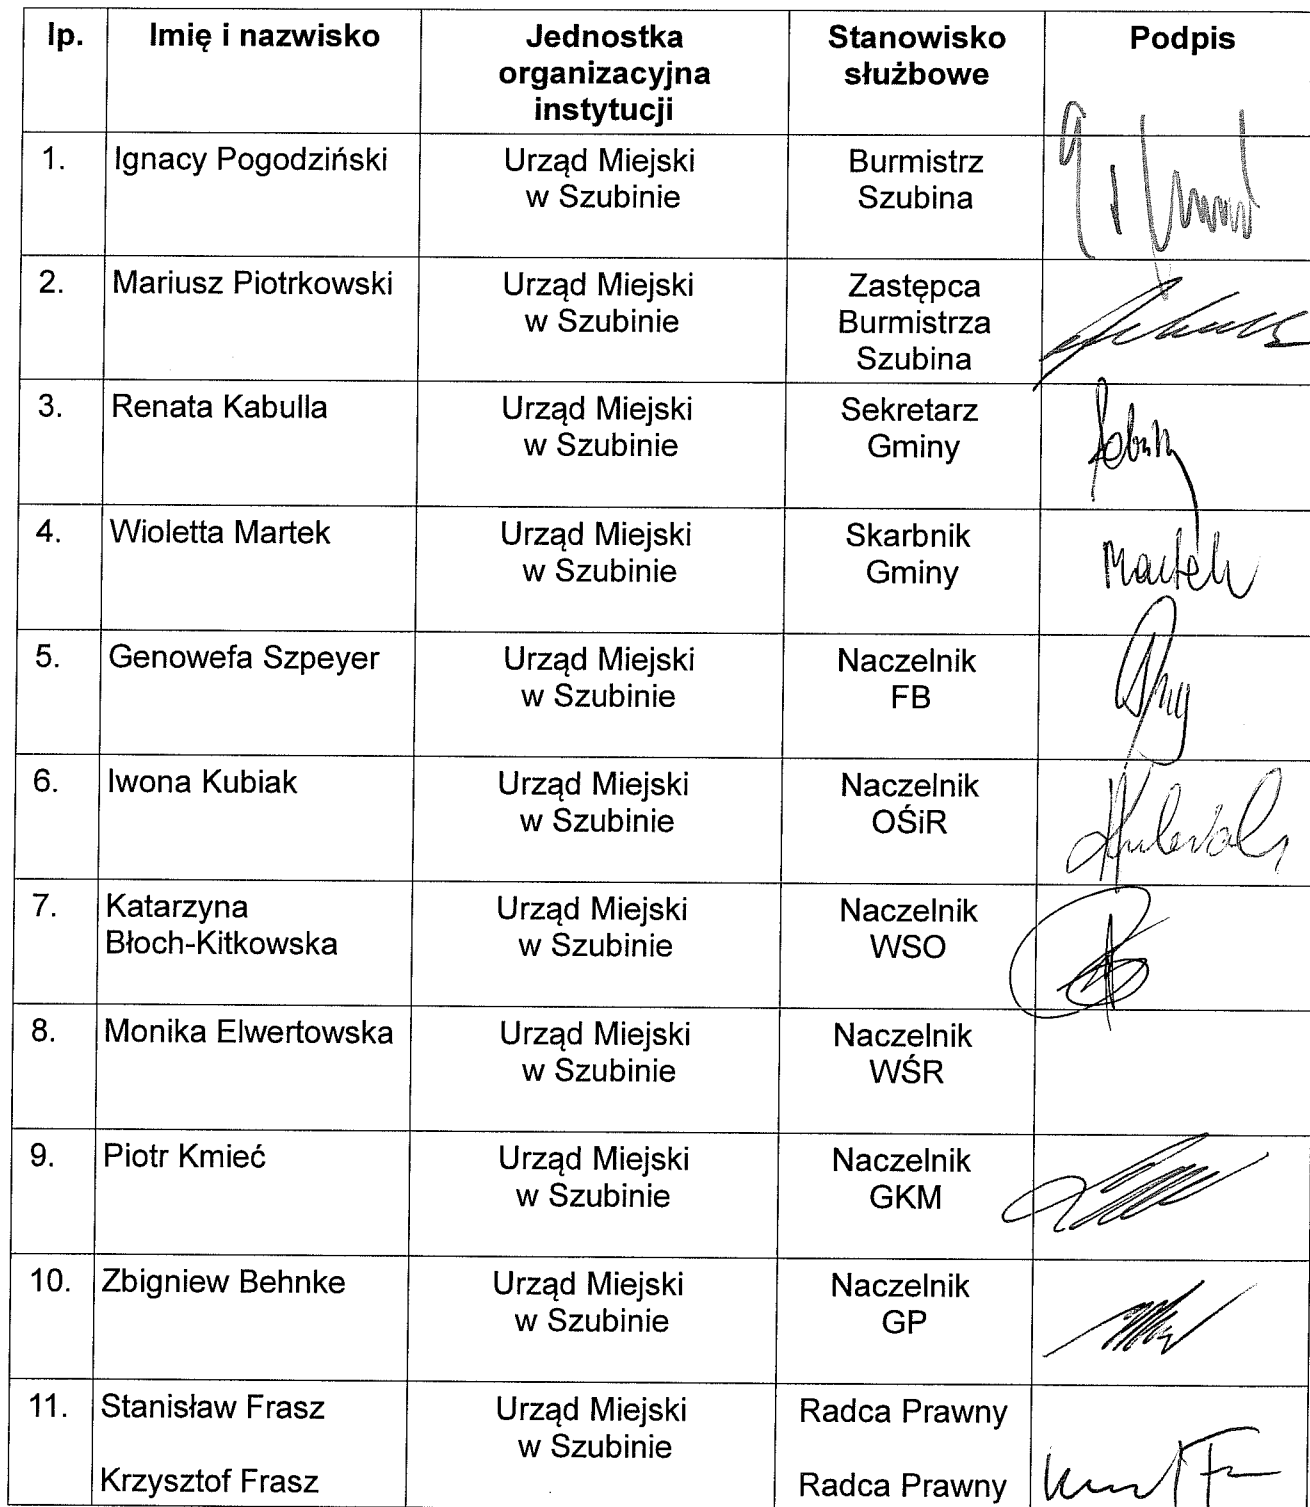 lp. Imię i nazwisko Jednostka organizacyjna instytucji Stanowisko służbowe Podpis
1. Ignacy Pogodziński Urząd Miejski w Szubinie Burmistrz Szubina
2. Mariusz Piotrkowski Urząd Miejski w Szubinie Zastępca Burmistrza Szubina
3. Renata Kabulla Urząd Miejski w Szubinie Sekretarz Gminy
4. Wioletta Martek Urząd Miejski w Szubinie Skarbnik Gminy Martek
5. Genowefa Szpeyer Urząd Miejski w Szubinie Naczelnik FB
6. Iwona Kubiak Urząd Miejski w Szubinie Naczelnik OŚiR
7. Katarzyna Błoch-Kitkowska Urząd Miejski w Szubinie Naczelnik WSO
8. Monika Elwertowska Urząd Miejski w Szubinie Naczelnik WŚR
9. Piotr Kmieć Urząd Miejski w Szubinie Naczelnik GKM
10. Zbigniew Behnke Urząd Miejski w Szubinie Naczelnik GP
11. Stanisław Frasz Urząd Miejski w Szubinie Radca Prawny
Krzysztof Frasz Radca Prawny